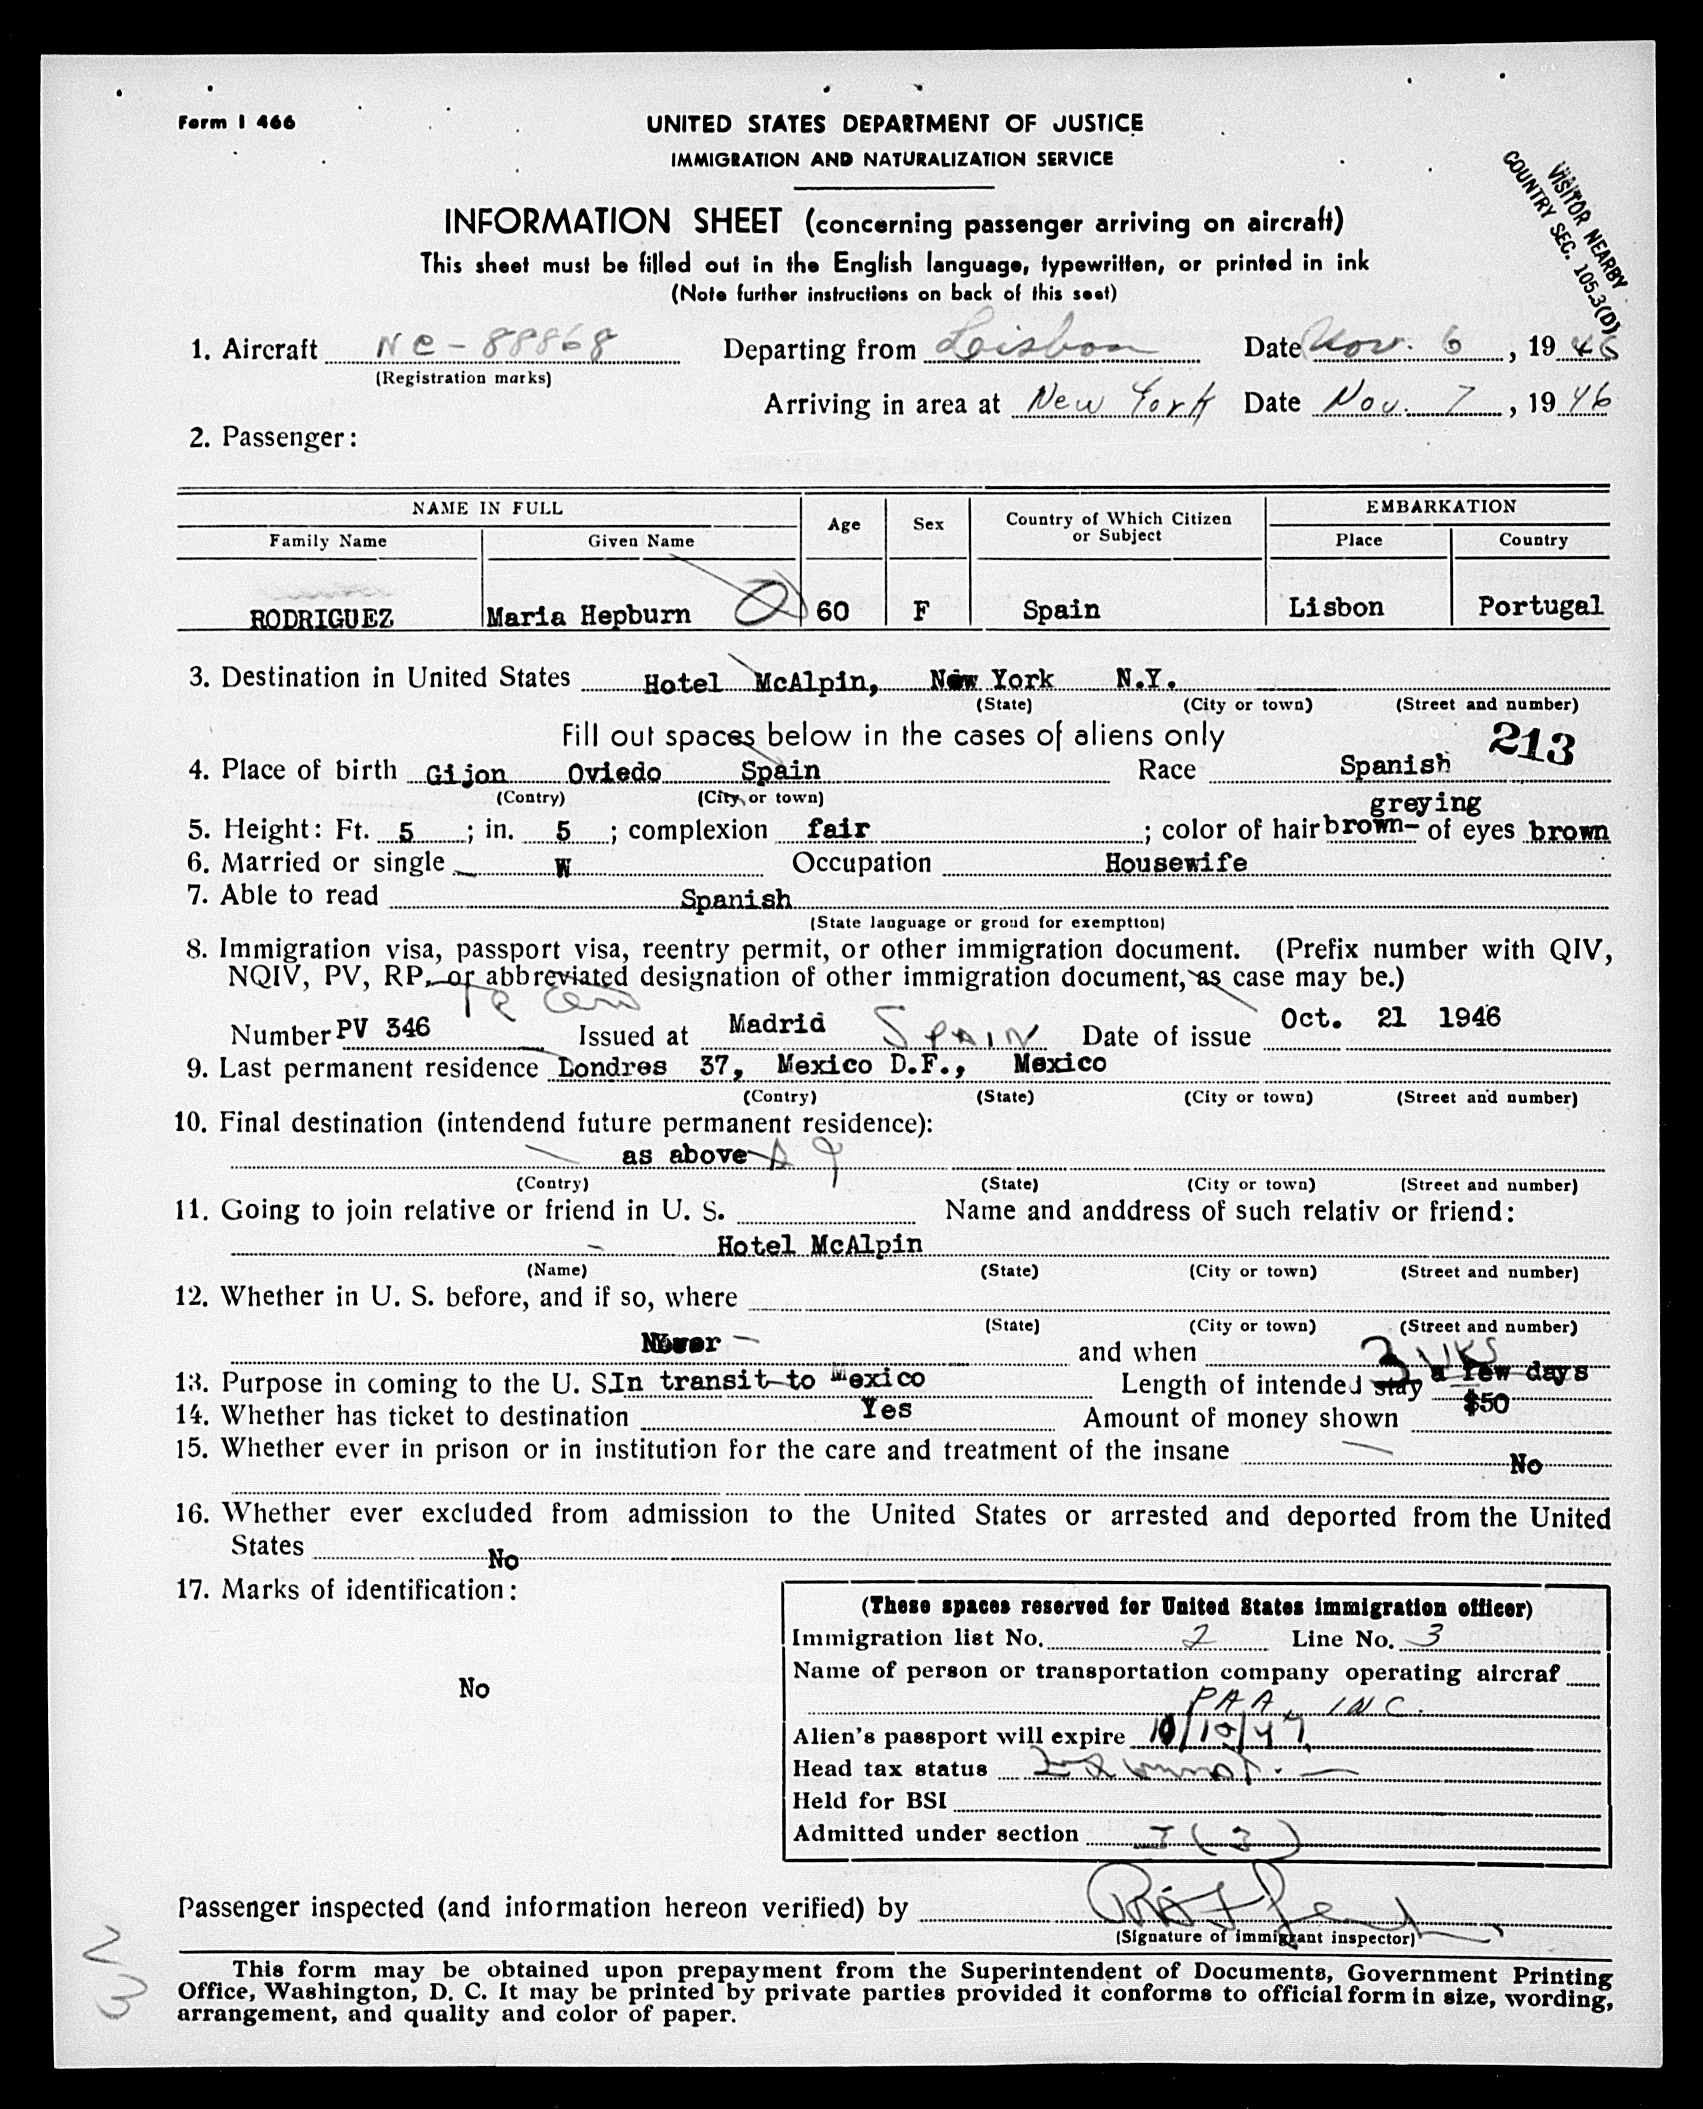 Form I 466
UNITED STATES DEPARTMENT OF JUSTICE
IMMIGRATION AND NATURALIZATION SERVICE
VISITOR NEARBY
COUNTRY SEC. 105.3(D)
INFORMATION SHEET (concerning passenger arriving on aircraft)
This sheet must be filled out in the English language, typewritten, or printed in ink
(Note further instructions on back of this seet)
1. Aircraft NC-88868 Departing from Lisbon Date Nov. 6, 1946
(Registration marks)
Arriving in area at New York Date Nov. 7, 1946
2. Passenger:
NAME IN FULL Age Sex Country of Which Citizen or Subject EMBARKATION
Family Name Given Name Place Country
RODRIGUEZ Maria Hepburn 60 F Spain Lisbon Portugal
3. Destination in United States Hotel McAlpin, New York N.Y.
(State) (City or town) (Street and number)
Fill out spaces below in the cases of aliens only
213
4. Place of birth Gijon Oviedo Spain Race Spanish
(Contry) (City or town)
greying
5. Height: Ft. 5; in. 5; complexion fair; color of hair brown- of eyes brown
6. Married or single W Occupation Housewife
7. Able to read Spanish
(State language or groud for exemption)
8. Immigration visa, passport visa, reentry permit, or other immigration document. (Prefix number with QIV,
NQIV, PV, RP, or abbreviated designation of other immigration document, as case may be.)
Number PV 346 Issued at Madrid SPAIN Date of issue Oct. 21 1946
9. Last permanent residence Londres 37, Mexico D.F., Mexico
(Contry) (State) (City or town) (Street and number)
10. Final destination (intendend future permanent residence):
as above
(Contry) (State) (City or town) (Street and number)
11. Going to join relative or friend in U. S. Name and anddress of such relativ or friend:
Hotel McAlpin
(Name) (State) (City or town) (Street and number)
12. Whether in U. S. before, and if so, where
(State) (City or town) (Street and number)
Never - and when
3 WKS
13. Purpose in coming to the U. S. In transit to Mexico Length of intended stay a few days
14. Whether has ticket to destination Yes Amount of money shown $50
15. Whether ever in prison or in institution for the care and treatment of the insane No
16. Whether ever excluded from admission to the United States or arrested and deported from the United
States No
17. Marks of identification:
No
(These spaces reserved for United States immigration officer)
Immigration list No. 2 Line No. 3
Name of person or transportation company operating aircraf
PAA, INC.
Alien's passport will expire 10/10/47
Head tax status
Held for BSI
Admitted under section 3(3)
Passenger inspected (and information hereon verified) by
(Signature of immigrant inspector)
2
3
This form may be obtained upon prepayment from the Superintendent of Documents, Government Printing
Office, Washington, D. C. It may be printed by private parties provided it conforms to official form in size, wording,
arrangement, and quality and color of paper.